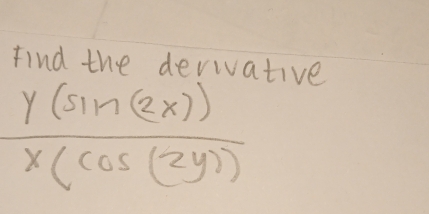 Find the derivative
y (sin (2x))
x (cos (2y))